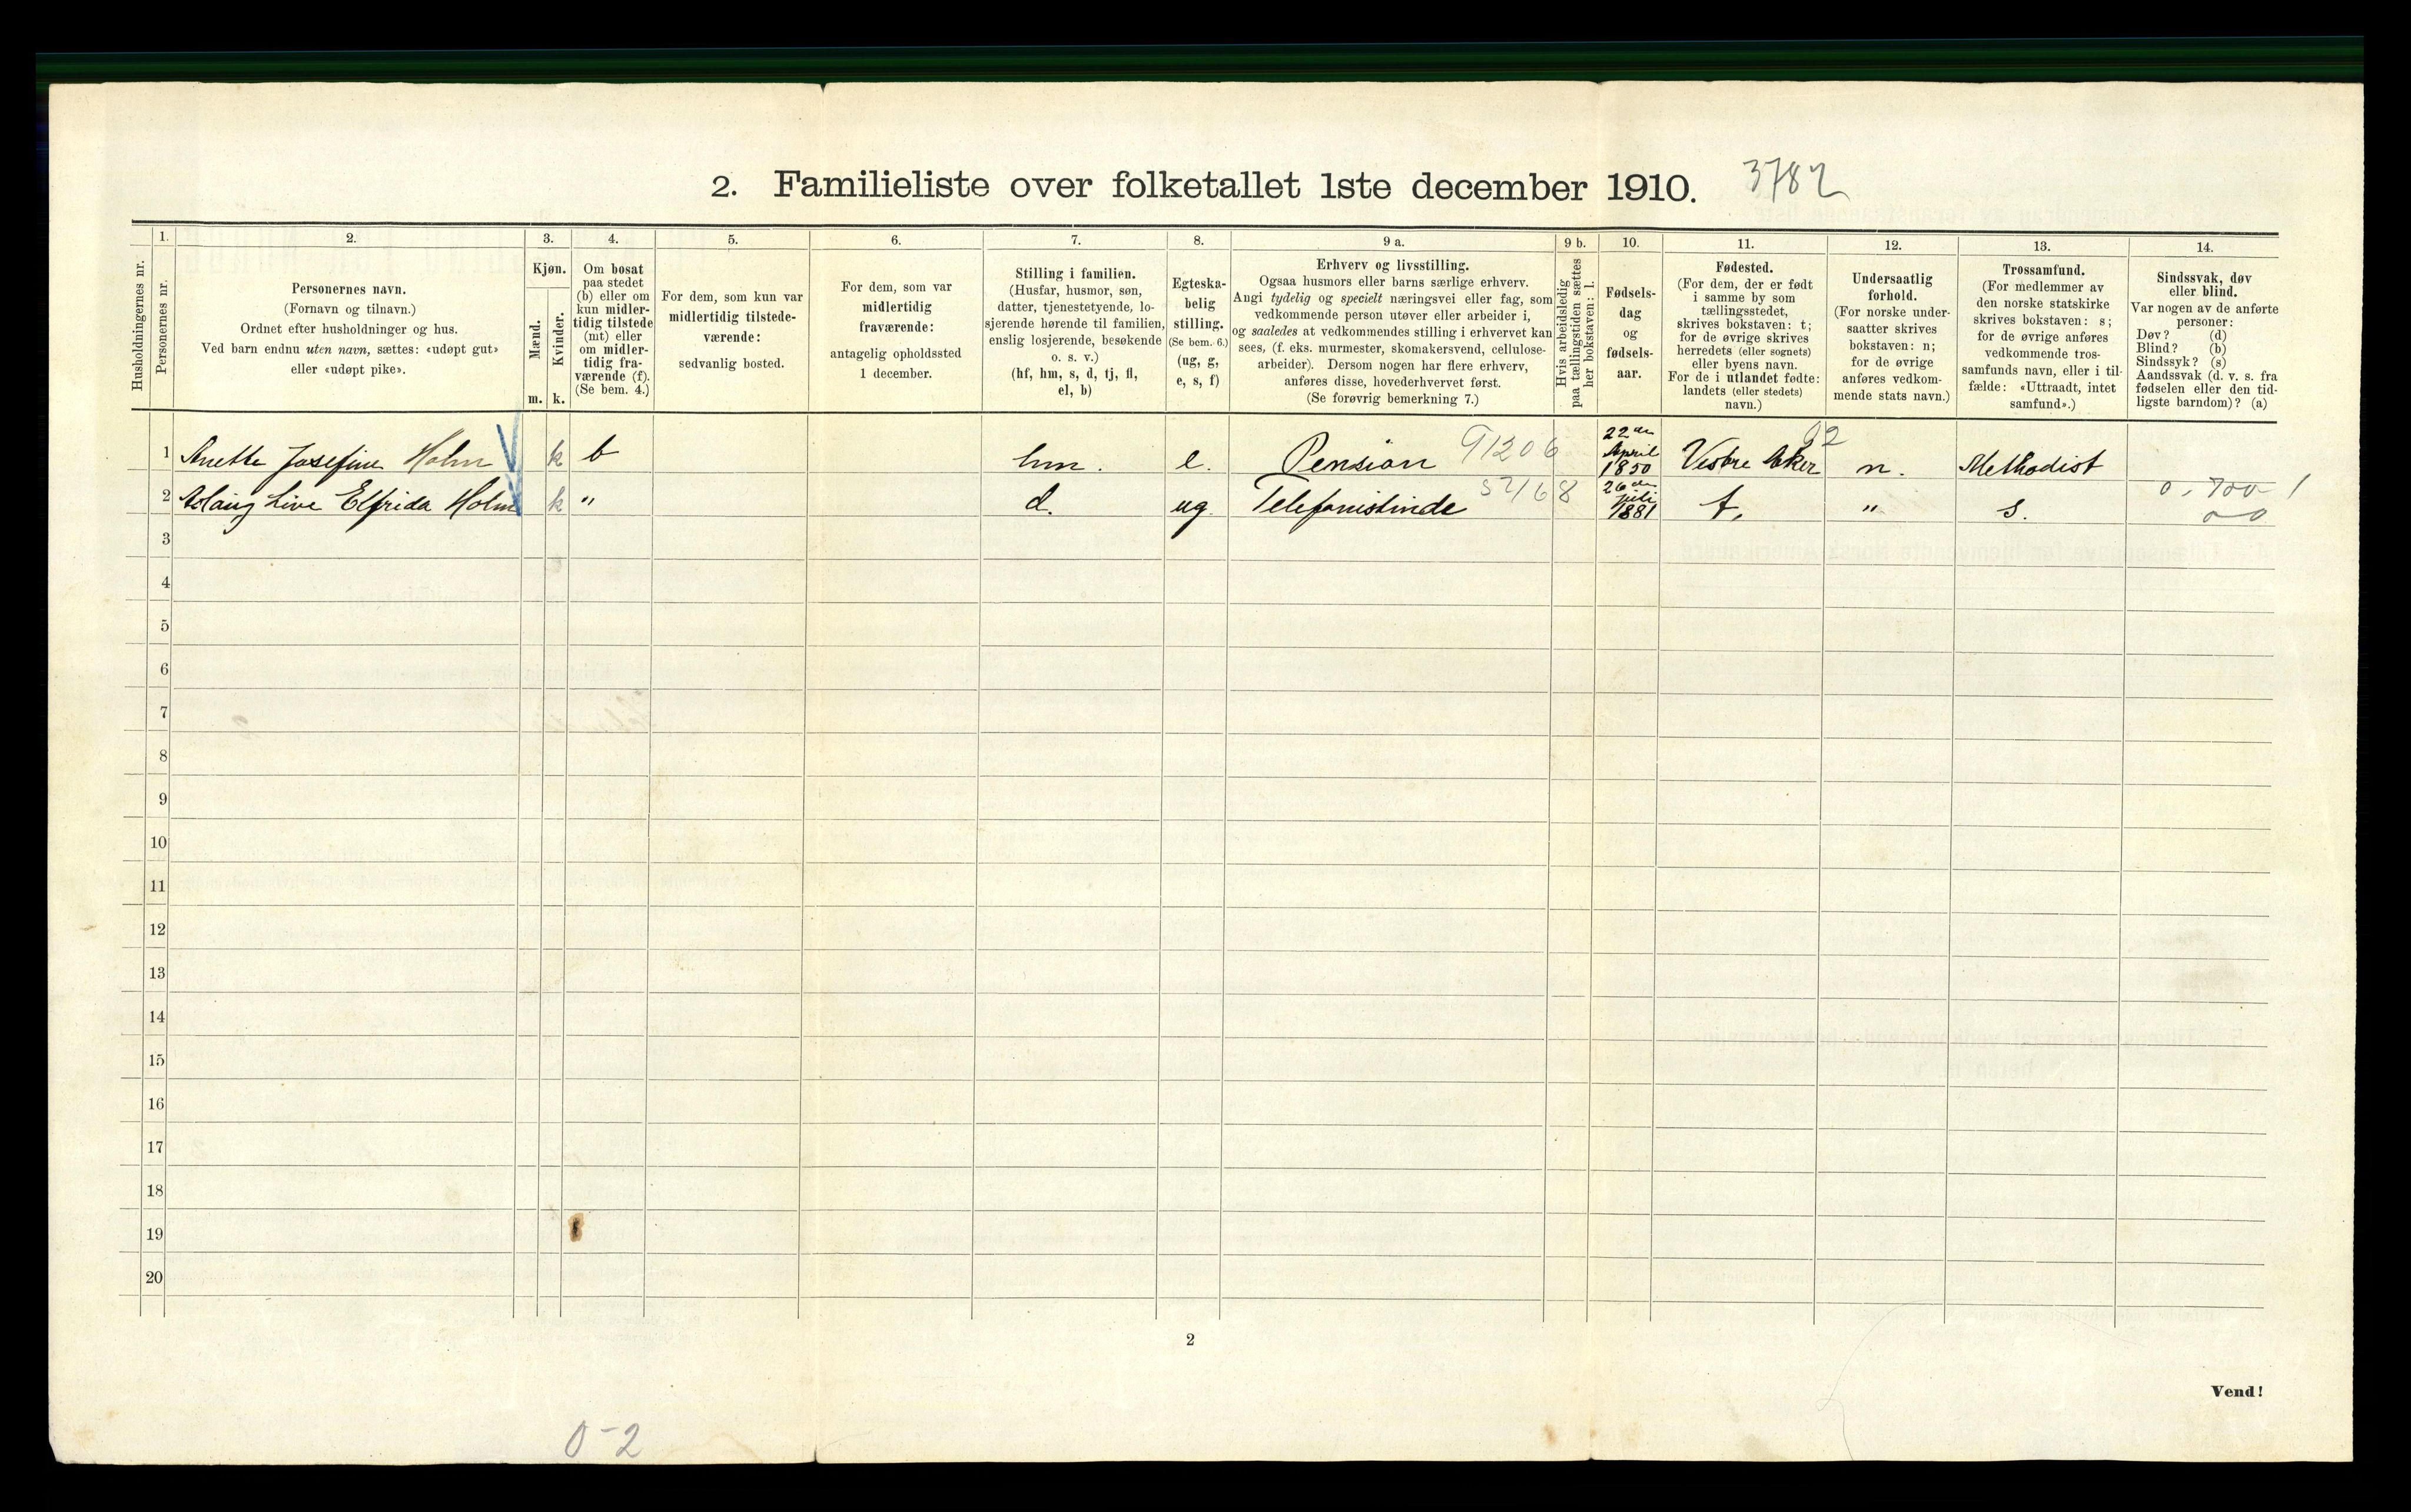 2. Familieliste over folketallet 1ste december 1910. 3782
Husholdningernes nr.
1.
Personernes nr.
2.
Personernes navn.
(Fornavn og tilnavn.)
Ordnet efter husholdninger og hus.
Ved barn endnu uten navn, sættes: «udøpt gut»
eller «udøpt pike».
3.
Kjøn.
Mænd.
Kvinder.
m. k.
4.
Om bosat
paa stedet
(b) eller om
kun midler-
tidig tilstede
(mt) eller
om midler-
tidig fra-
værende (f).
(Se bem. 4.)
5.
For dem, som kun var
midlertidig tilstede-
værende:
sedvanlig bosted.
6.
For dem, som var
midlertidig
fraværende:
antagelig opholdssted
1 december.
7.
Stilling i familien.
(Husfar, husmor, søn,
datter, tjenestetyende, lo-
sjerende hørende til familien,
enslig losjerende, besøkende
o. s. v.)
(hf, hm, s, d, tj, fl,
el, b)
8.
Egteska-
belig
stilling.
(Se bem. 6.)
(ug, g,
e, s, f)
9 a.
Erhverv og livsstilling.
Ogsaa husmors eller barns særlige erhverv.
Angi tydelig og specielt næringsvei eller fag, som
vedkommende person utøver eller arbeider i,
og saaledes at vedkommendes stilling i erhvervet kan
sees, (f. eks. murmester, skomakersvend, cellulose-
arbeider). Dersom nogen har flere erhverv,
anføres disse, hovederhvervet først.
(Se forøvrig bemerkning 7.)
9 b.
Hvis arbeidsledig
paa tællingstiden sættes
her bokstaven: l.
10.
Fødsels-
dag
og
fødsels-
aar.
11.
Fødested.
(For dem, der er født
i samme by som
tællingsstedet,
skrives bokstaven: t;
for de øvrige skrives
herredets (eller sognets)
eller byens navn.
For de i utlandet fødte:
landets (eller stedets)
navn.)
12.
Undersaatlig
forhold.
(For norske under-
saatter skrives
bokstaven: n;
for de øvrige
anføres vedkom-
mende stats navn.)
13.
Trossamfund.
(For medlemmer av
den norske statskirke
skrives bokstaven: s;
for de øvrige anføres
vedkommende tros-
samfunds navn, eller i til-
fælde: «Uttraadt, intet
samfund».)
14.
Sindssvak, døv
eller blind.
Var nogen av de anførte
personer:
Døv? (d)
Blind? (b)
Sindssyk? (s)
Aandssvak (d. v. s. fra
fødselen eller den tid-
ligste barndom)? (a)
1 Anette Josefine Holm k b hm. e. Pension 91206 22de April 1850 Vestre Aker 02 n. Methodist
2 Live Elfrida Holm k " d. ug. Telefonistinde 26de juli 1881 t. " s.
3
4
5
6
7
8
9
10
11
12
13
14
15
16
17
18
19
20
2
Vend!
0-2